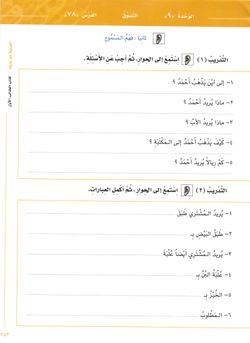 الوَحْدَة «٩» التَّسَوُّق الدَّرْس «٧٨»
ثانِيا: فَهْمُ المَسْمُوع
التَّدْرِيبُ (١) اِسْتَمِعْ إِلَى الحِوَارِ، ثُمَّ أَجِبْ عَنِ الأَسْئِلَةِ.
١- إِلَى أَيْنَ يَذْهَبُ أَحْمَدُ ؟
٢- مَاذا يُرِيدُ أَحْمَدُ ؟
٣- مَاذا يُرِيدُ الأَبُ ؟
٤- كَيْفَ يَذْهَبُ أَحْمَدُ إِلَى المَكْتَبَةِ ؟
٥- كَمْ رِيَالاً يُرِيدُ أَحْمَدُ ؟
التَّدْرِيبُ (٢) اِسْتَمِعْ إِلَى الحِوَارِ، ثُمَّ أَكْمِلِ العِبَارَاتِ.
١- يُرِيدُ المُشْتَرِي طَبَقَ
٢- طَبَقُ البَيْضِ بِـ
٣- يُرِيدُ المُشْتَرِي أَيْضاً عُلْبَةَ
٤- عُلْبَةُ البُنِّ بِـ
٥- الخُبْزُ بِـ
٦- المَطْلُوبُ